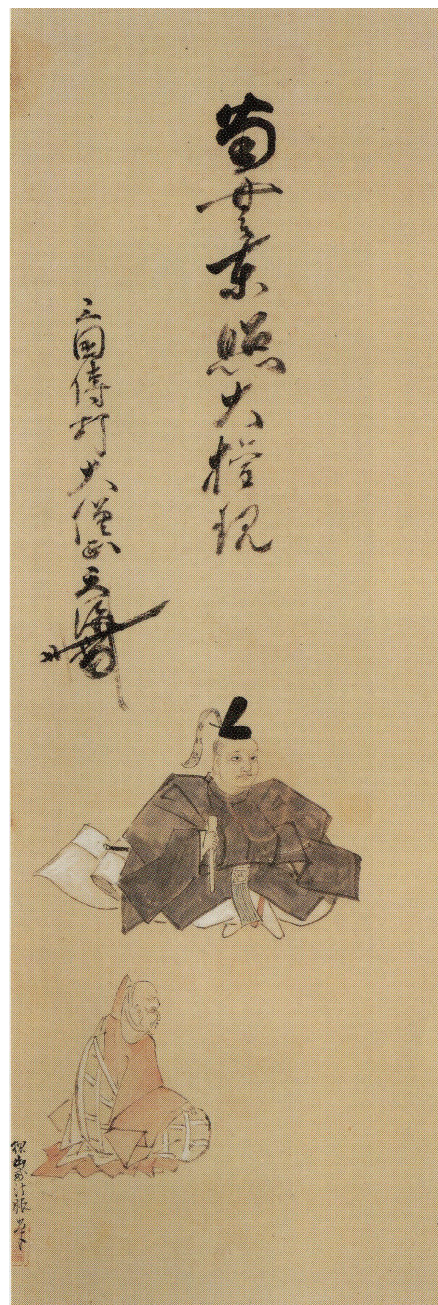 南無東照大権現
三国傳灯大僧正天海